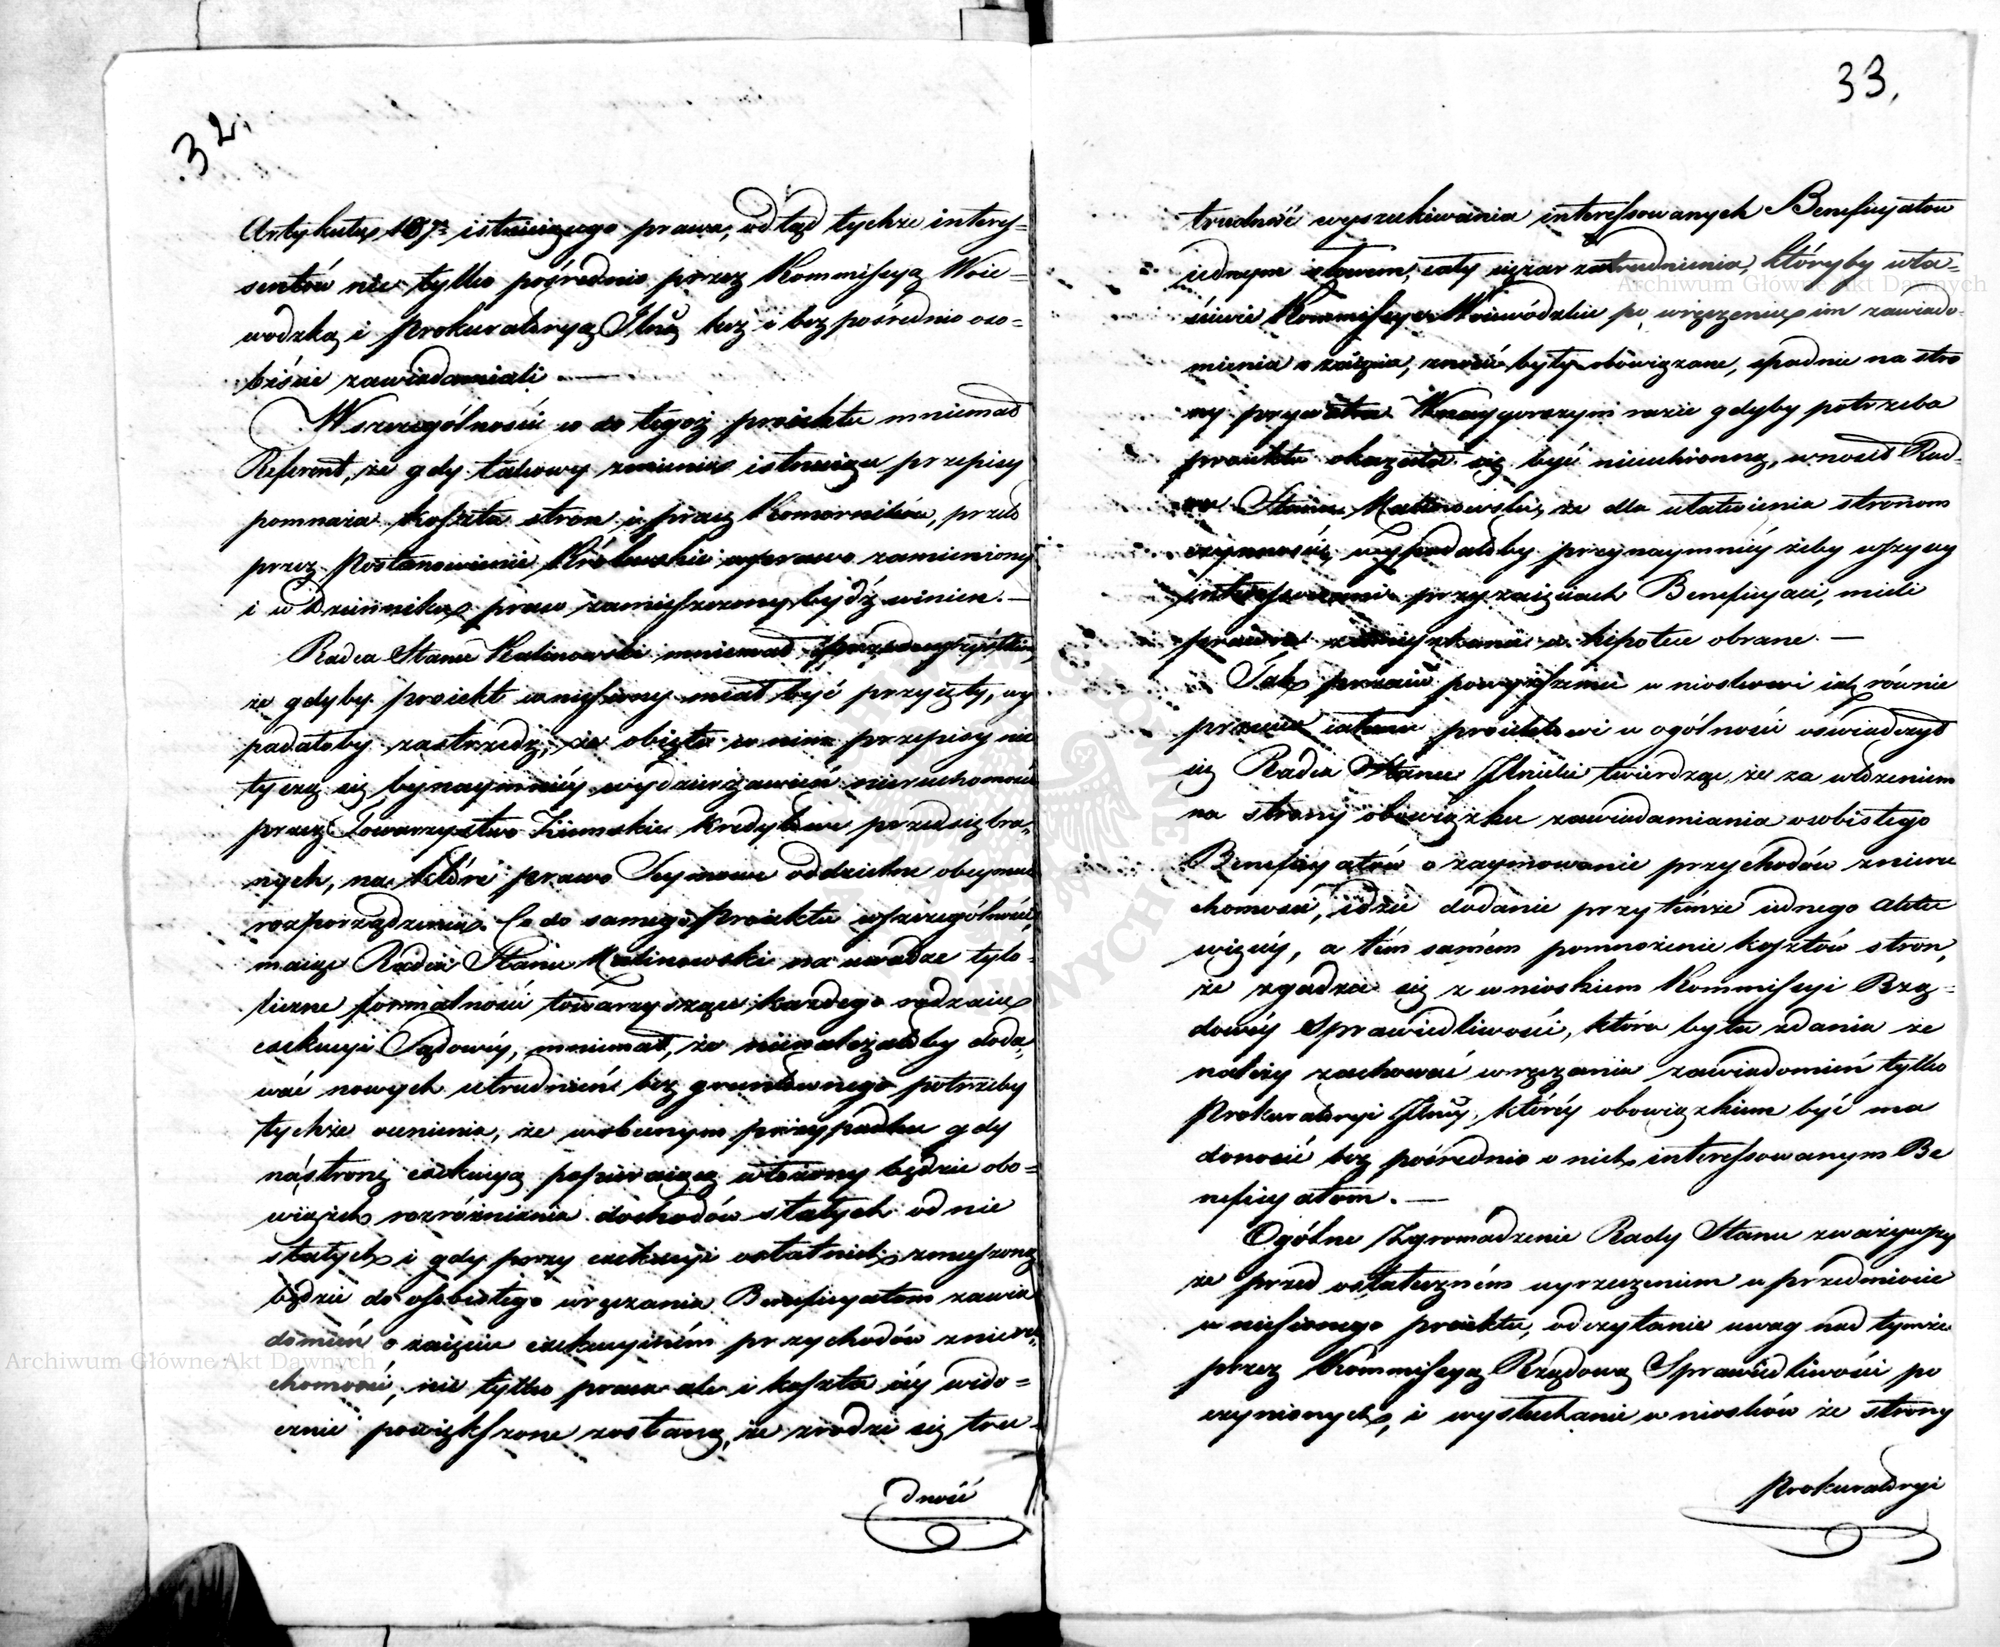 32.
Artykułu 107. istnieiącego prawa, odtąd tychże interes-
sentów nie tylko pośrednio przez Kommissyą Woie-
wodzką i Prokuratoryą Jlną lecz i bezpośrednio oso-
biście zawiadamiali. —
W szczególności co do tegoż proiektu mniemał
Referent, że gdy takowy zmienia istnieiące przepisy
pomnaża koszta stron i pracę Komorników, przeto
przez Postanowienie Królewskie w prawo zamieniony
i w Dzienniku praw zamieszczony bydź winien. —
Radca Stanu Kalinowski mniemał przedewszystkiem,
że gdyby proiekt wniesiony miał być przyięty, wy
padałoby zastrzedz, że obięte w nim przepisy nie
tyczą się bynaymniéy wydzierżawień nieruchomości
przez Towarzystwo Ziemskie kredytowe przedsiębra-
nych, na które prawo Seymowe oddzielne obeymuie
rozporządzenia. Co do samego Proiektu w szczególności,
maiąc Radca Stanu Kalinowski na uwadze tylo-
liczne formalności towarzyszące każdego rodzaiu
exekucyi Sądowéy, mniemał, że nienależałoby doda-
wać nowych utrudnień bez gruntownego potrzeby
tychże ocenienia, że w obecnym przypadku gdy
na stronę exekucyą popieraiącą włożony będzie obo-
wiązek rozróżniania dochodów stałych od nie
stałych i gdy przy exekucyi ostatnich zmuszoną
będzie do osobistego wręczania Beneficyatom zawia
domień o zaięciu exekucyiném przychodów z nieru-
chomości, nie tylko praca ale i koszta iéy wido-
cznie powiększone zostaną, że zrodzi się tru-
dność
33.
trudność wyszukiwania interessowanych Beneficyatów
iednym słowem, cały ciężar zatrudnienia, któryby wła-
ściwie Kommissye Woiewódzkie po wręczeniu im zawiado-
mienia o zaięciu, znosić były obowiązane, spadnie na stro
ny prywatne. W naygorszym razie gdyby potrzeba
proiektu okazała się być nieuchronną, wnosił Rad-
ca Stanu Kalinowski, że dla ułatwienia stronom
czynności, wypadałoby przynaymniéy żeby wszyscy
interessowani przy zaięciach Beneficyaci, mieli
prawne zamieszkanie w hipotece obrane. —
Tak przeciw powyższemu wnioskowi iak równie
przeciw całemu proiektowi w ogólności oświadczył
się Radca Stanu twierdząc, że za włożeniem
na strony obowiązku zawiadamiania osobistego
Beneficyatów o zaymowanie przychodów z nieru
chomości, idzie dodanie przytémże iednego aktu
więcéy, a tém samém pomnożenie kosztów stron,
że zgadza się z wnioskiem Kommissyi Rzą-
dowéy Sprawiedliwości, która była zdania że
należy zachować wręczania zawiadomień tylko
Prokuratoryi Jlnéy, któréy obowiązkiem być ma
donosić bezpośrednio o nich interessowanym Be
neficyatom. —
Ogólne Zgromadzenie Rady Stanu zważywszy
że przed ostateczném wyrzeczeniem w przedmiocie
wniesionego proiektu, odczytanie uwag nad tymże
przez Kommissyą Rządową Sprawiedliwości po
czynionych, i wysłuchanie wniosków ze strony
Prokuratoryi
Archiwum Główne Akt Dawnych
Archiwum Główne Akt Dawnych